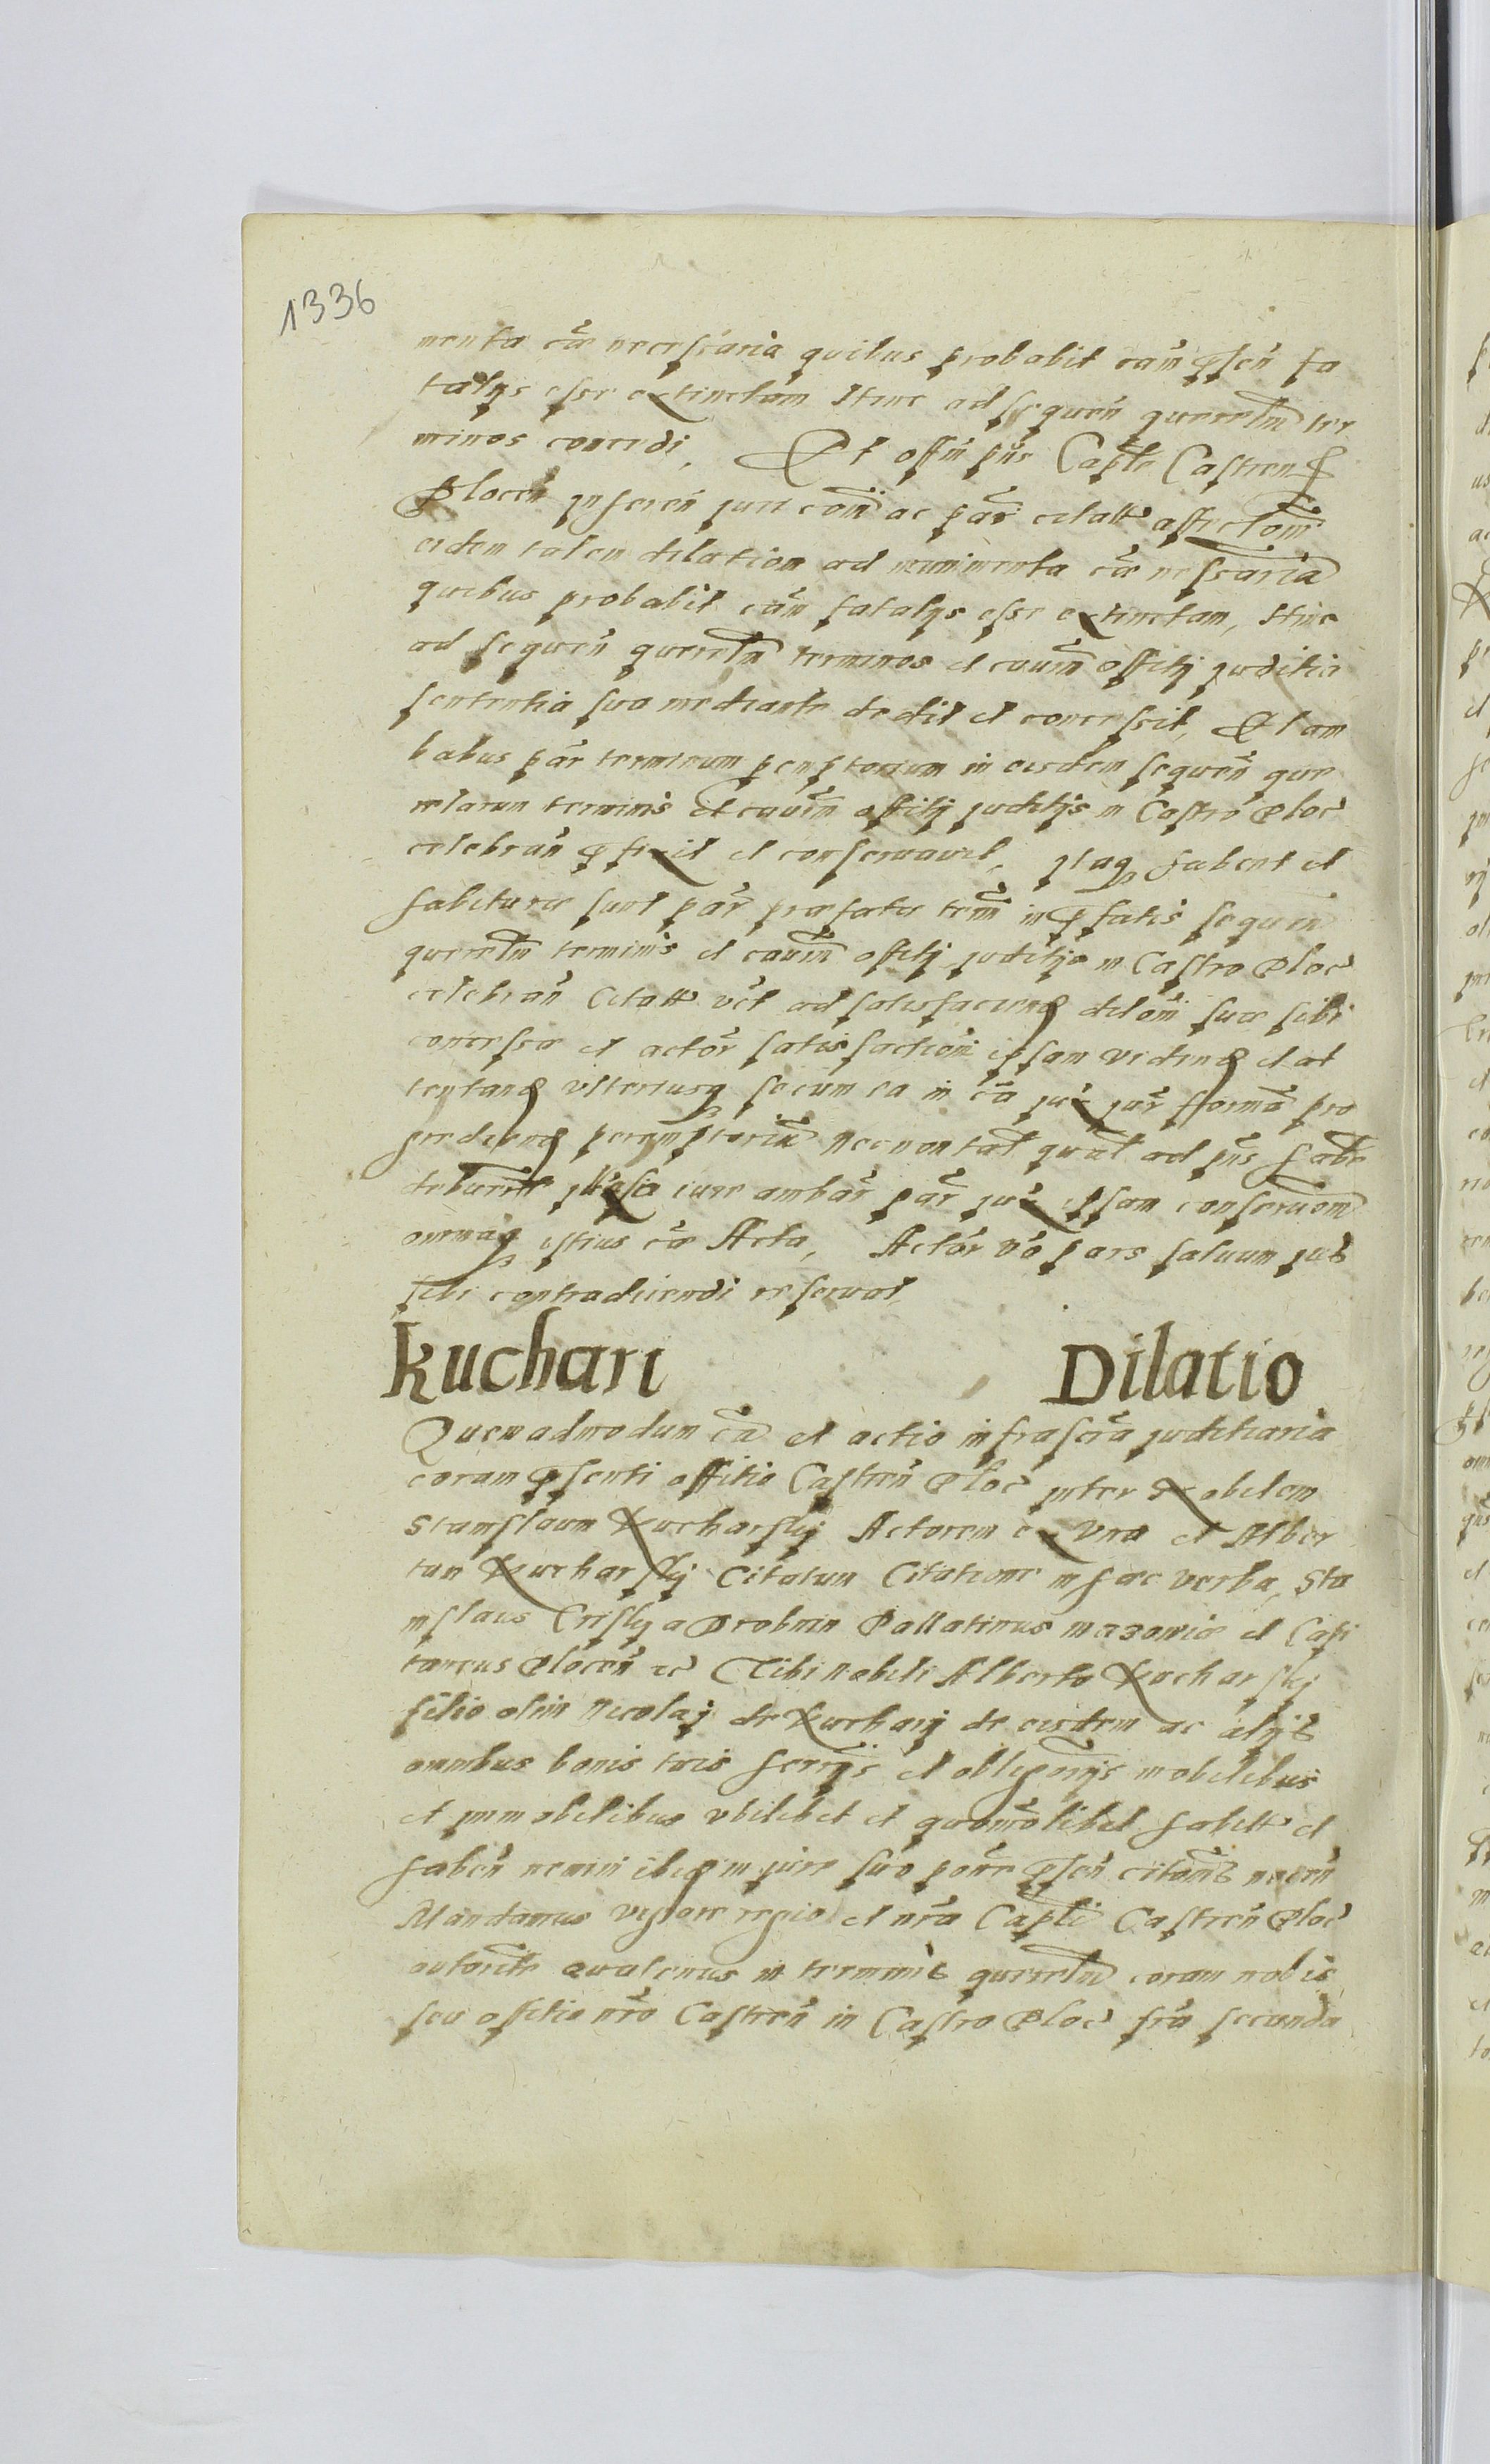 1336
menta cae necessaria quibus probabit cam pnsen fa
talys esse extinctam Hinc ad sequen querelm ter
minos concedi, Et offm pns Caple Castren
Plocen Inheren iuri coni ac par citatte affectom
eidem talem dilation ad munimenta cae nessaria
quibus probabit cam fatalys esse extinctam, Hinc
ad sequen querelm terminos et cauim offity juditia
sententia sua mediante dedit et concessit, Et am
babus par terminum pemptorium in eisdem sequen que
relarum terminis et cauim offity juditys in Castro Ploc
celebran pfixit et conservavit, Itaq habent et
habiture sunt par praefate term in pfatis sequen
querelm terminis et cauim offity juditys in Castro Ploc
celebran Citatt vt ad satisfaciend dilom suae sibi
concessae et actor satisfaction ipsam videnda et at
tentand vlteriusq secum ea in ca jux jur formam pro
grediend peremptorium Necnon tal qual ad pns habe
debuerit illaeso iure ambar par jux ipsam conservom
omniaq istius cae Acta, Actor vo pars saluum jus
sibi contradicendi reservat,
Kuchari Dilatio
Quemadmodum ca et actio infrascra juditiaria
coram psenti offitio Castren Ploc inter Nobilem
Stanislaum Kucharsky Actorem ex Una et Alber
tum Kucharsky Citatum Citatione in haec verba, Sta
nislaus Crisky a Drobnin Pallatinus mazoviae et Capi
taneus Plocen etc Tibi Nobili Alberto Kucharsky
filio olim Nicolaj de Kuchary de eisdem ac alys
omnibus bonis tuis hereys et obligorys mobilibus
et immobilibus vbilibet et quomolibet habitt et
haben nemini ibidem jure suo pone psen citams nocen
Mandamus vigore regio et nra Capli Castren Ploc
autorite quatenus in terminis querelm coram nobis
seu offitio nro Castren in Castro Ploc fra secunda